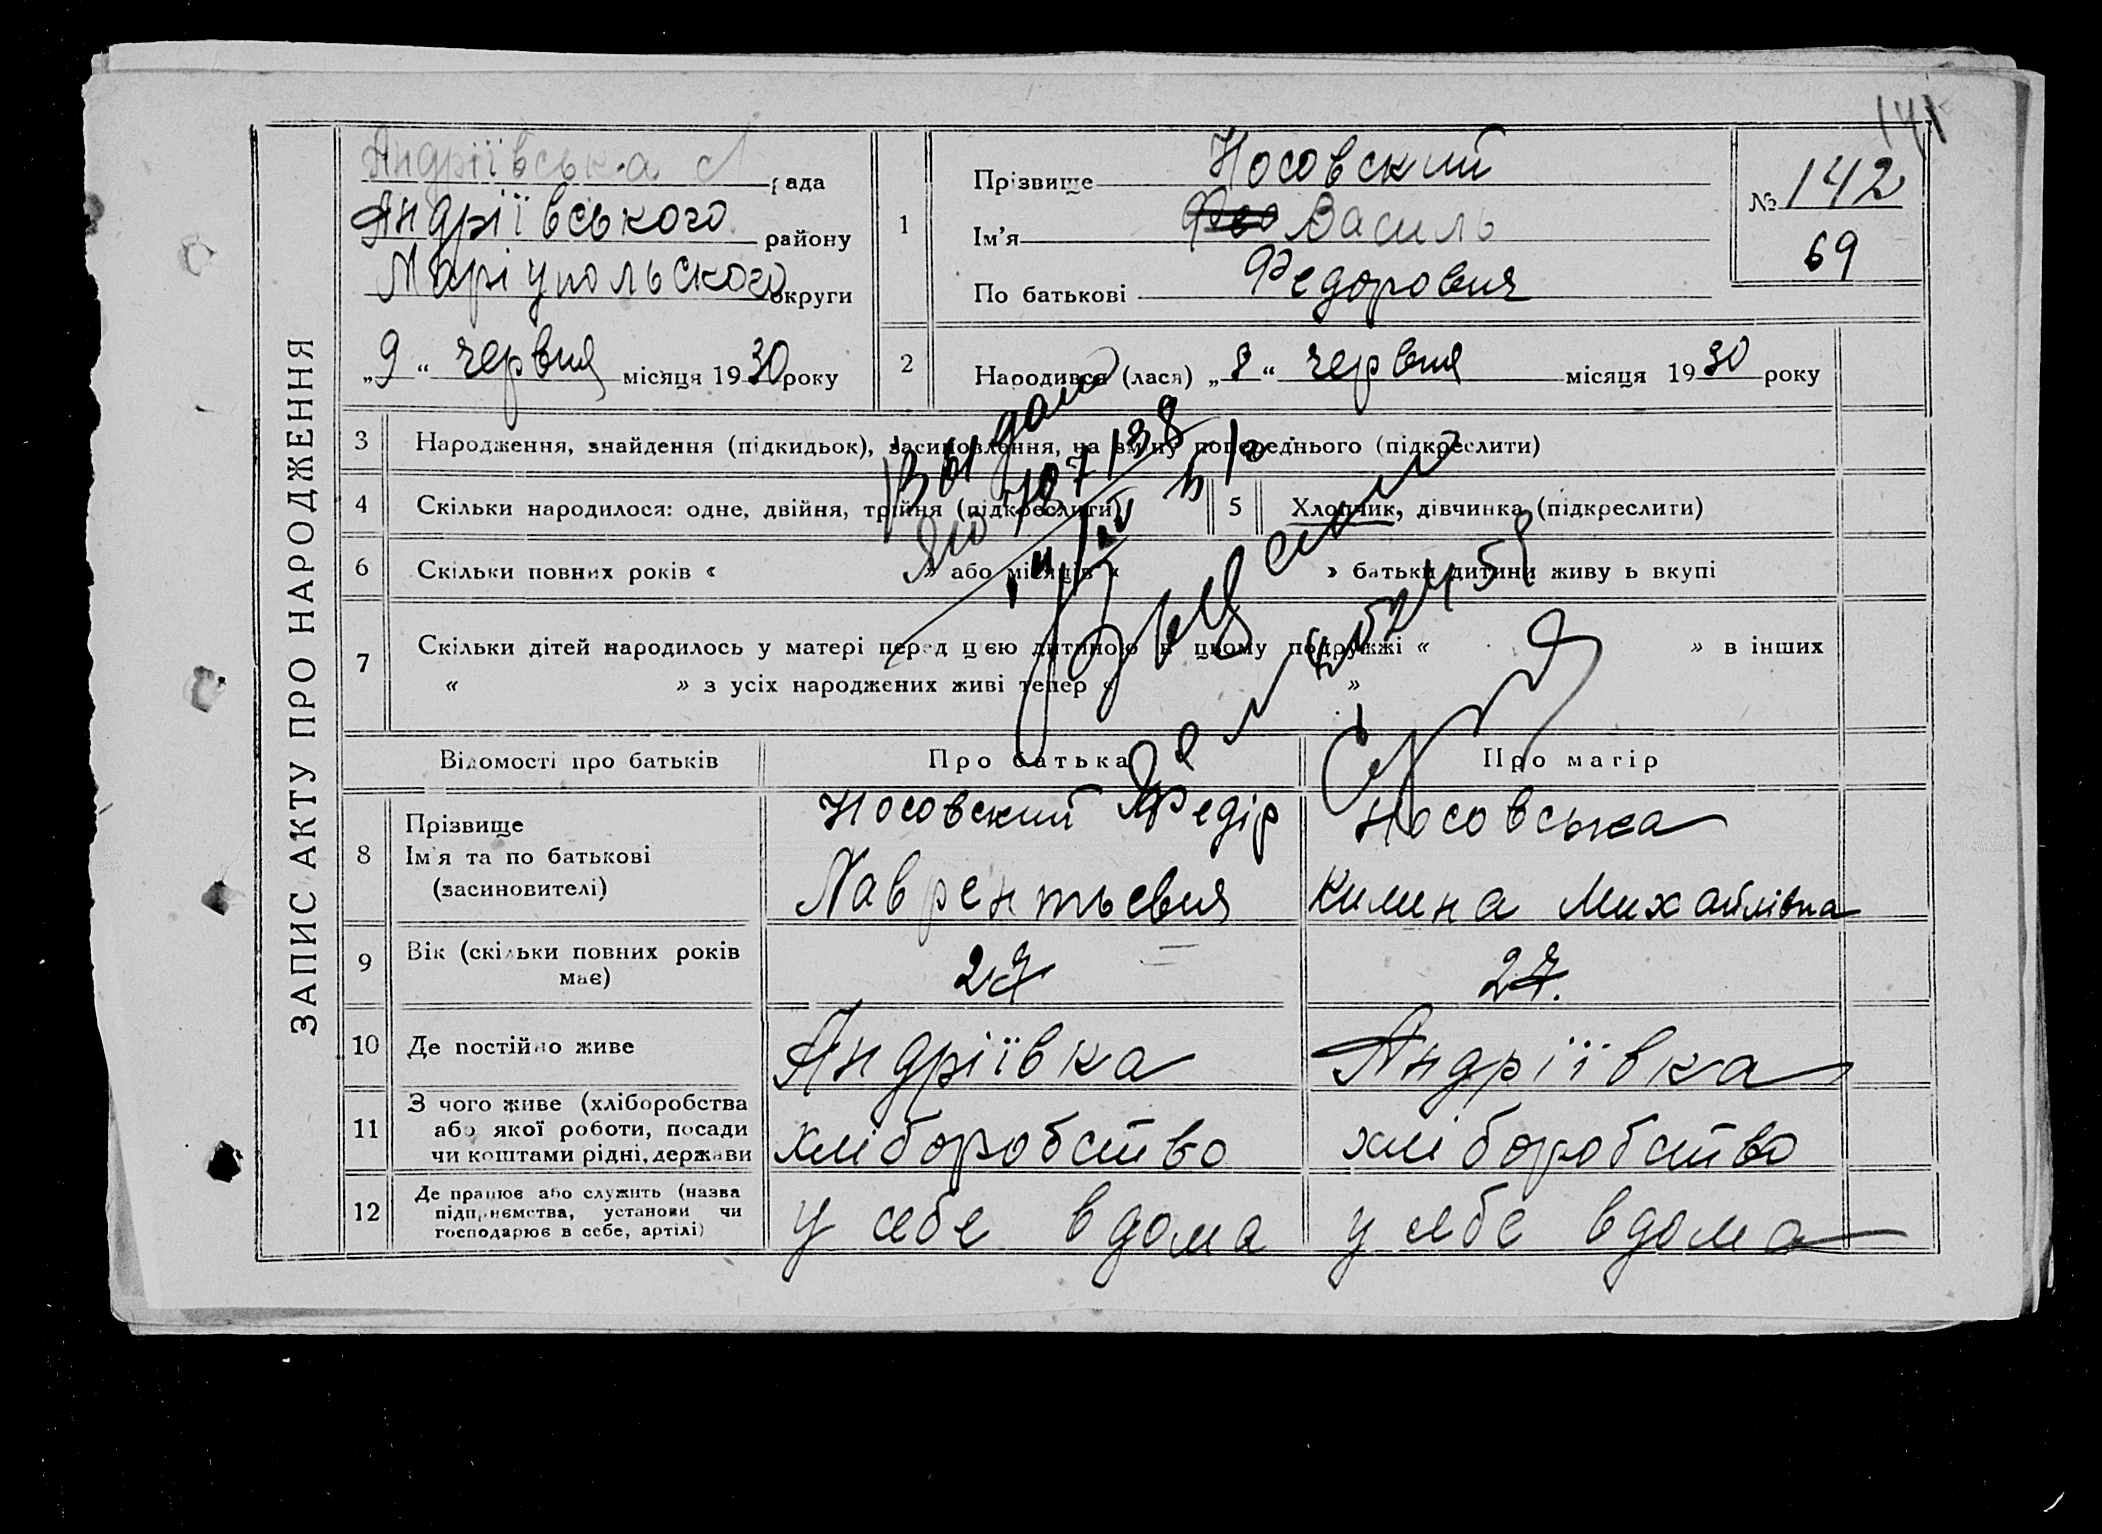 141
ЗАПИС АКТУ ПРО НАРОДЖЕННЯ
Андріївська рада
Андріївського району
Маріупольского округи
„9“ червня місяця 1930 року
1
Прізвище Носовский
Ім'я Фео Василь
По батькові Федорович
№ 142
69
2
Народився (лася) „8“ червня місяця 1930 року
3 Народження, знайдення (підкидьок), засиновлення, на зміну попереднього (підкреслити)
4 Скільки народилося: одне, двійня, трійня (підкреслити)
5 Хлопчик, дівчинка (підкреслити)
6 Скільки повних років « » або місяців « » батьки дитини живуть вкупі
7 Скільки дітей народилось у матері перед цією дитиною в цьому подружжі « » в інших
« » з усіх народжених живі тепер « »
Выдано
Відомості про батьків
Про батька
Про матір
8
Прізвище
Ім'я та по батькові
(засиновителі)
Носовский Федір
Лаврентьевич
Носовська
Килина Михайлівна
9
Вік (скільки повних років
має)
27
27.
10 Де постійно живе
Андріївка
Андріївка
11
З чого живе (хліборобства
або якої роботи, посади
чи коштами рідні, держави
хліборобство
хліборобство
12
Де працює або служить (назва
підприємства, установи чи
господарює в себе, артілі)
у себе вдома
у себе вдома